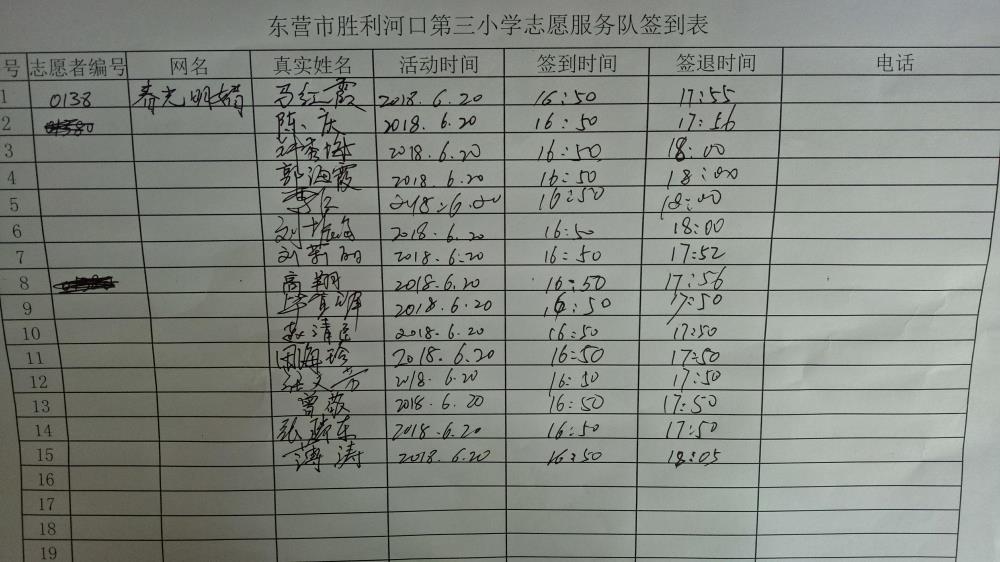 东营市胜利河口第三小学志愿服务队签到表
号 志愿者编号 网名 真实姓名 活动时间 签到时间 签退时间 电话
1 0138 春光明媚 马红霞 2018.6.20 16:50 17:55
2 陈庆 2018.6.20 16:50 17:56
3 2018.6.20 16:50 18:00
4 郭海霞 2018.6.20 16:50 18:00
5 2018.6.20 16:50 18:00
6 刘 2018.6.20 16:50 18:00
7 刘 丽 2018.6.20 16:50 17:52
8 高翔 2018.6.20 16:50 17:56
9 2018.6.20 16:50 17:50
10 赵清 2018.6.20 16:50 17:50
11 周海玲 2018.6.20 16:50 17:50
12 文芳 2018.6.20 16:50 17:50
13 曾敬 2018.6.20 16:50 17:50
14 张 东 2018.6.20 16:50 17:50
15 薄涛 2018.6.20 16:50 18:05
16
17
18
19